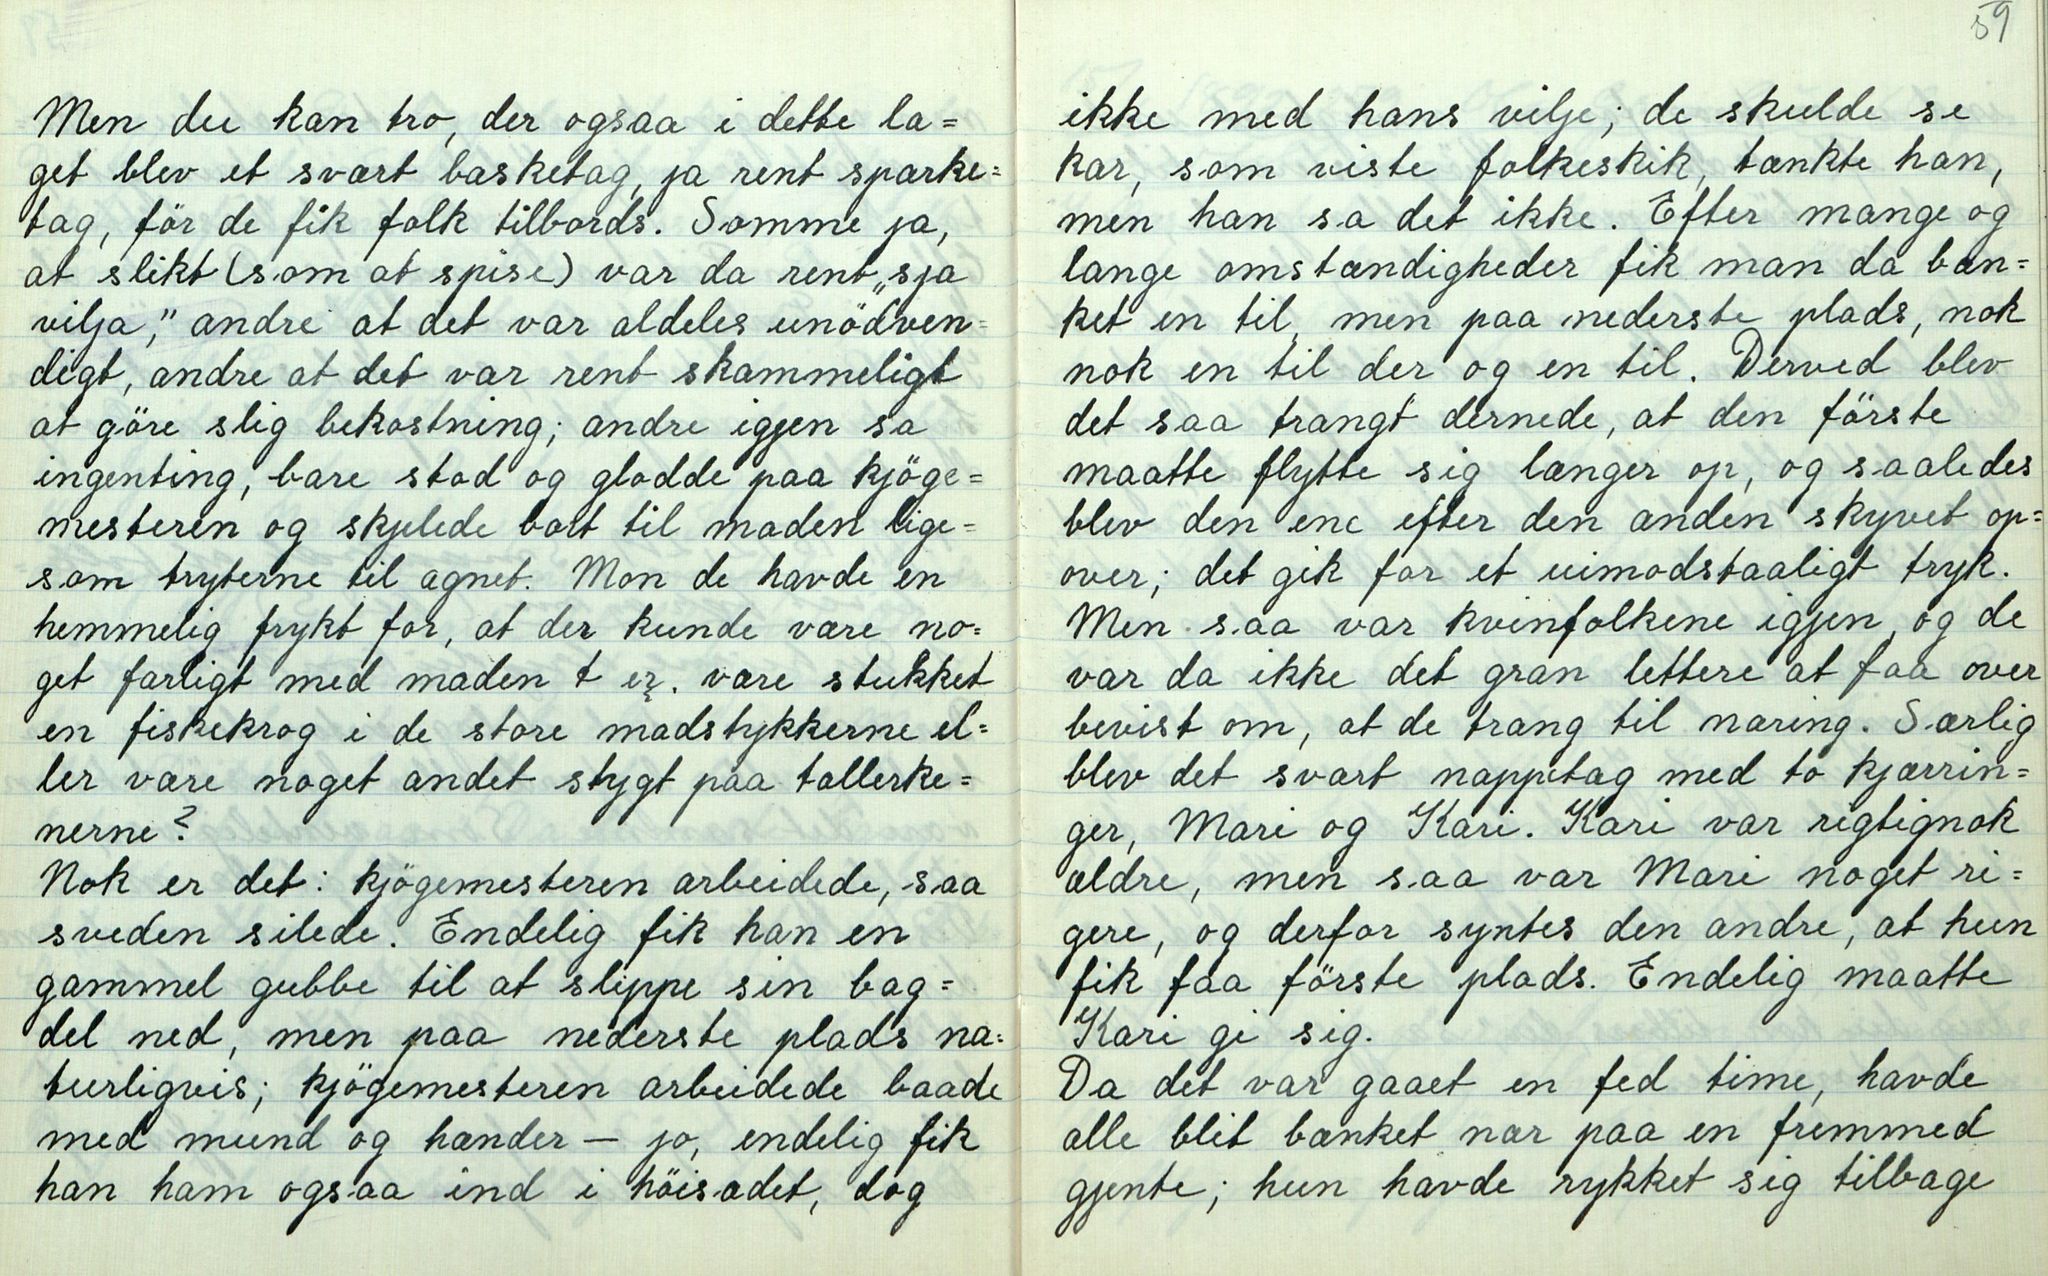 Men du kan tro, der ogsaa i dette la=
get blev et svært basketag, ja rent sparke=
tag, för de fik folk tilbords. Somme ja,
at slikt (som at spise) var da rent „sja
vilja,” andre at det var aldeles unödven=
digt, andre at det var rent skammeligt
at göre slig bekostning; andre igjen sa
ingenting, bare stod og glodde paa kjöge=
mesteren og skjelede bort til maden lige=
som tryterne til agnet. Mon de havde en
hemmelig frykt for, at der kunde være no=
get farligt med maden t ex. være stukket
en fiskekrog i de store madstykkerne el=
ler være noget andet stygt paa tallerke=
nerne?
Nok er det: kjögemesteren arbeidede, saa
sveden silede. Endelig fik han en
gammel gubbe til at slippe sin bag=
del ned, men paa nederste plads na=
turligvis; kjögemesteren arbeidede baade
med mund og hænder — jo, endelig fik
han ham ogsaa ind i höisædet, dog
59
ikke med hans vilje; de skulde se
kar, som viste folkeskik, tænkte han,
men han sa det ikke. Efter mange og
lange omstændigheder fik man da bæn=
ket en til, men paa nederste plads, nok
nok en til der og en til. Derved blev
det saa trangt dernede, at den förste
maatte flytte sig længer op, og saaledes
blev den ene efter den anden skyvet op=
over; det gik for et uimodstaaligt tryk.
Men saa var kvinfolkene igjen, og de
var da ikke det gran lettere at faa over
bevist om, at de trang til næring. Særlig
blev det svært nappetag med to kjærrin=
ger, Mari og Kari. Kari var rigtignok
ældre, men saa var Mari noget ri=
gere, og derfor syntes den andre, at hun
fik faa förste plads. Endelig maatte
Kari gi sig.
Da det var gaaet en fed time, havde
alle blit bænket nær paa en fremmed
gjente; hun havde rykket sig tilbage